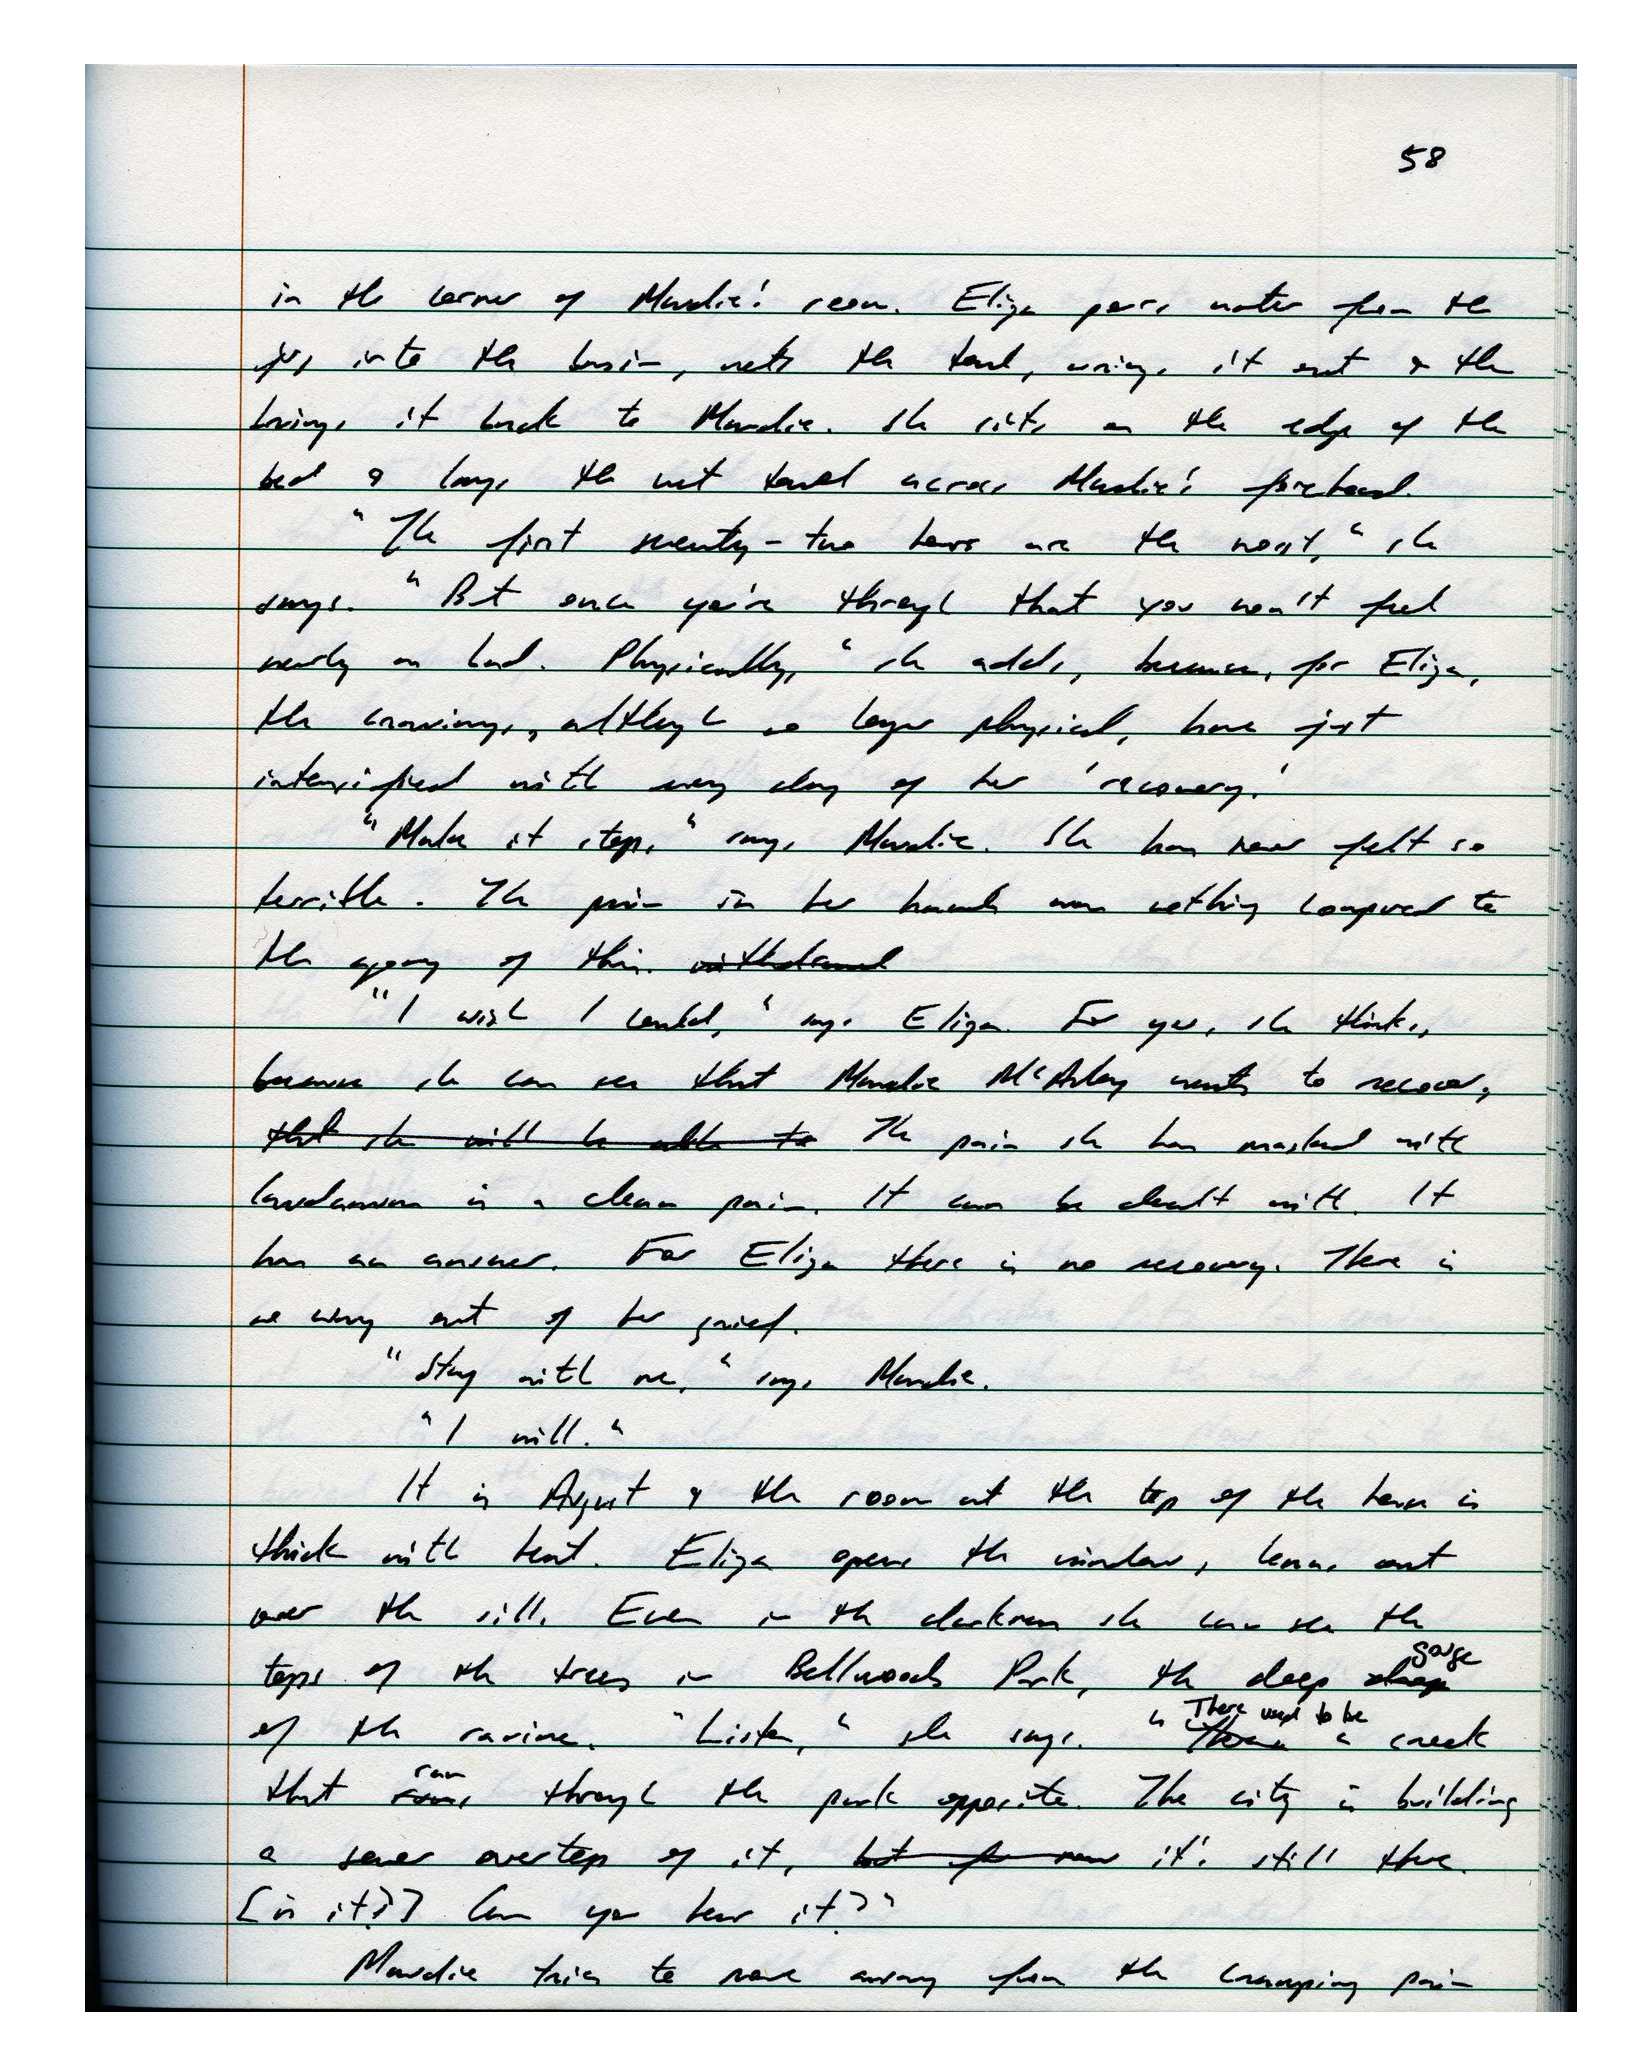 58
in the corner of Maudie's room. Eliza pours water from the
jug into the basin, wets the towel, wrings it out & then
brings it back to Maudie. She sits on the edge of the
bed & lays the wet towel across Maudie's forehead.
"The first seventy-two hours are the worst," she
says. "But once you're through that you won't feel
nearly as bad. Physically," she adds, because, for Eliza,
the cravings, although no longer physical, have just
intensified with every day of her 'recovery.'
"Make it stop," says Maudie. She has never felt so
terrible. The pain in her hands was nothing compared to
the agony of this. withdrawal
"I wish I could," says Eliza. For you, she thinks,
because she can see that Maudie McArley wants to recover,
that she will be able to The pain she has masked with
laudanum is a clean pain. It can be dealt with. It
has an answer. For Eliza there is no recovery. There is
no way out of her grief.
"Stay with me," says Maudie.
"I will."
It is August & the room at the top of the house is
thick with heat. Eliza opens the window, leans out
over the sill. Even in the darkness she can see the
gorge
tops of the trees in Bellwoods Park, the deep
There used to be
of the ravine. "Listen," she says. " a creek
ran
that runs through the park opposite. The city is building
a sewer overtop of it, but for now it's still there.
[in it?] Can you hear it?"
Maudie tries to move away from the cramping pain